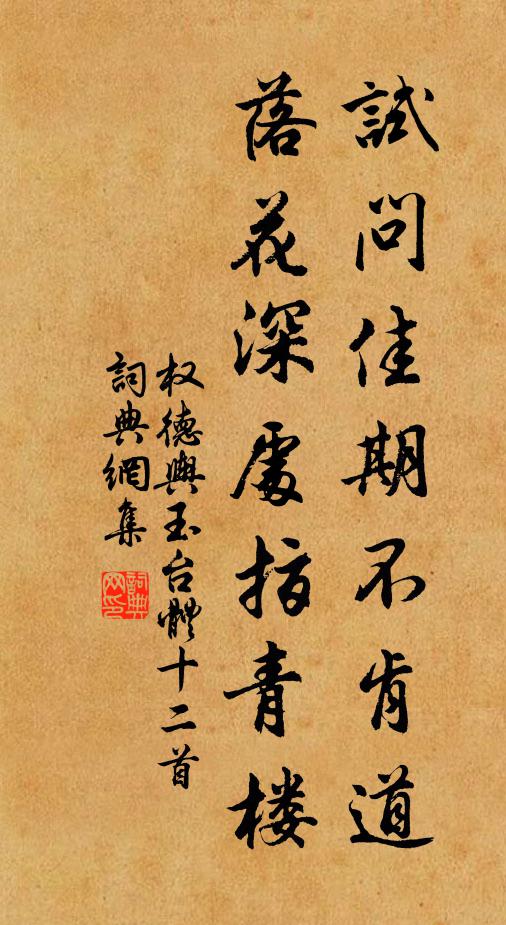 試問佳期不肯道
落花深處指青楼
权德輿玉台體十二首
詞典網集
詞典网印